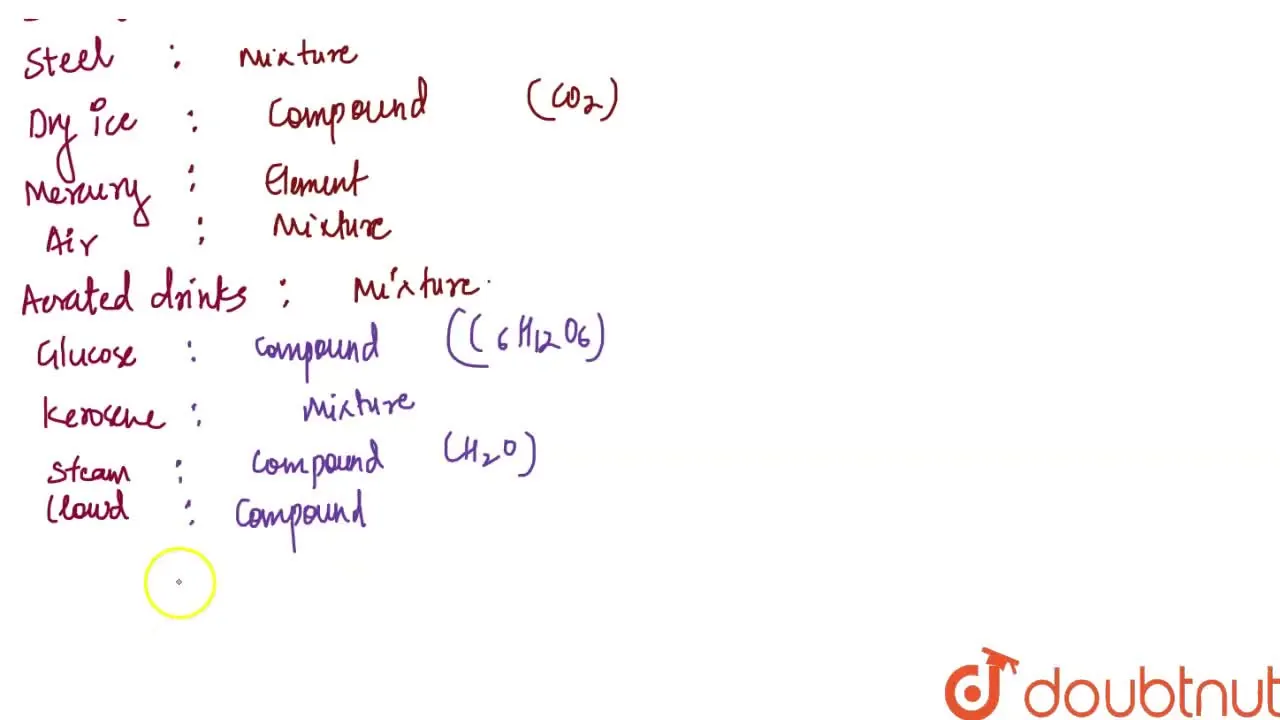 Steel : Mixture
Dry ice : Compound (CO2)
Mercury : Element
Air : Mixture
Aerated drinks : Mixture.
Glucose : Compound (C6H12O6)
Kerosene : Mixture
Steam : Compound (H2O)
Cloud : Compound
doubtnut